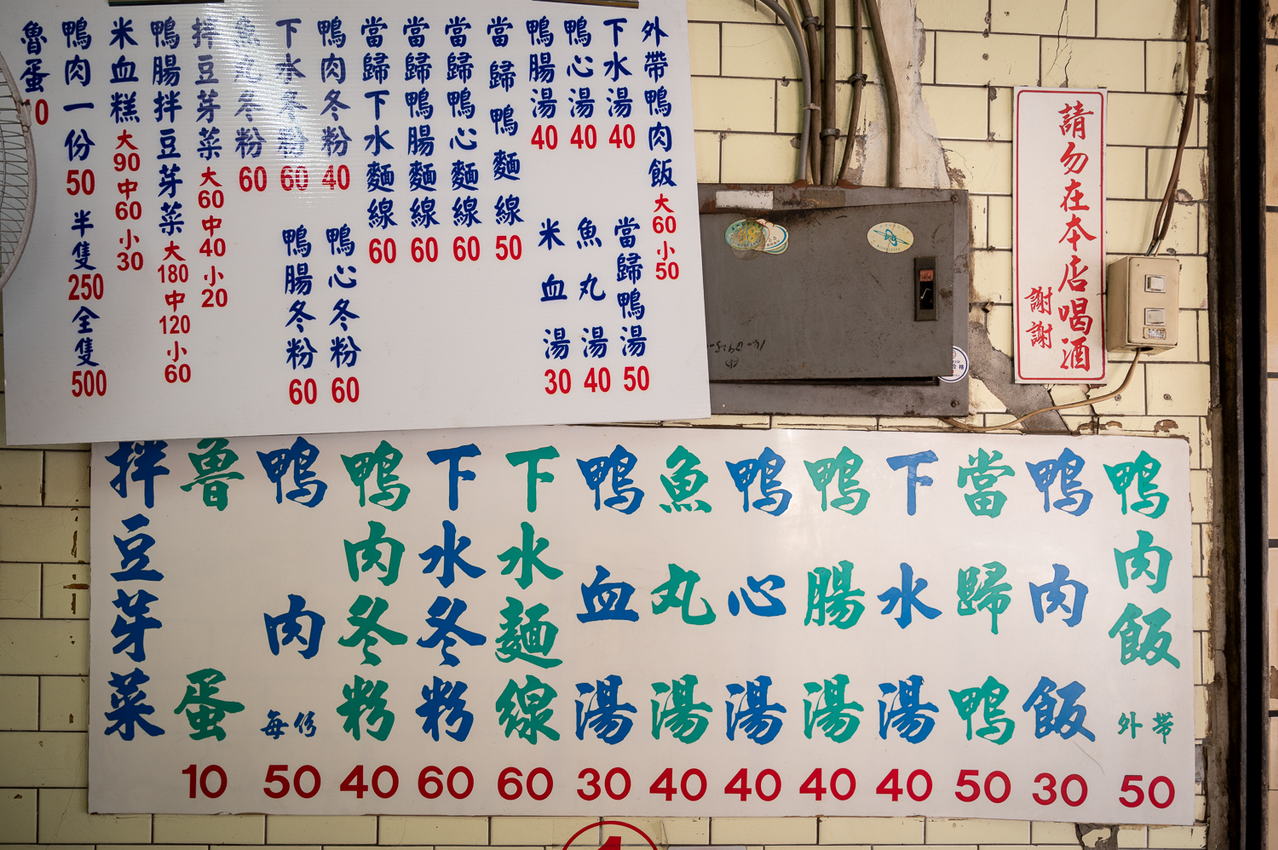 外帶鴨肉飯 大60 小50
下水湯 40
當歸鴨湯 50
鴨心湯 40
魚丸湯 40
鴨腸湯 40
米血湯 30
當歸鴨麵線 50
當歸鴨心麵線 60
當歸鴨腸麵線 60
當歸下水麵線 60
鴨肉冬粉 40
鴨心冬粉 60
下水冬粉 60
鴨腸冬粉 60
魚丸冬粉 60
拌豆芽菜 大60 中40 小20
鴨腸拌豆芽菜 大180 中120 小60
米血糕 大90 中60 小30
鴨肉一份 50 半隻 250 全隻 500
魯蛋
請勿在本店喝酒
謝謝
鴨肉飯 外帶 50
鴨肉飯 30
當歸鴨 50
下水湯 40
鴨腸湯 40
鴨心湯 40
魚丸湯 40
鴨血湯 30
下水麵線 60
下水冬粉 60
鴨肉冬粉 40
鴨肉 每份 50
魯蛋 10
拌豆芽菜